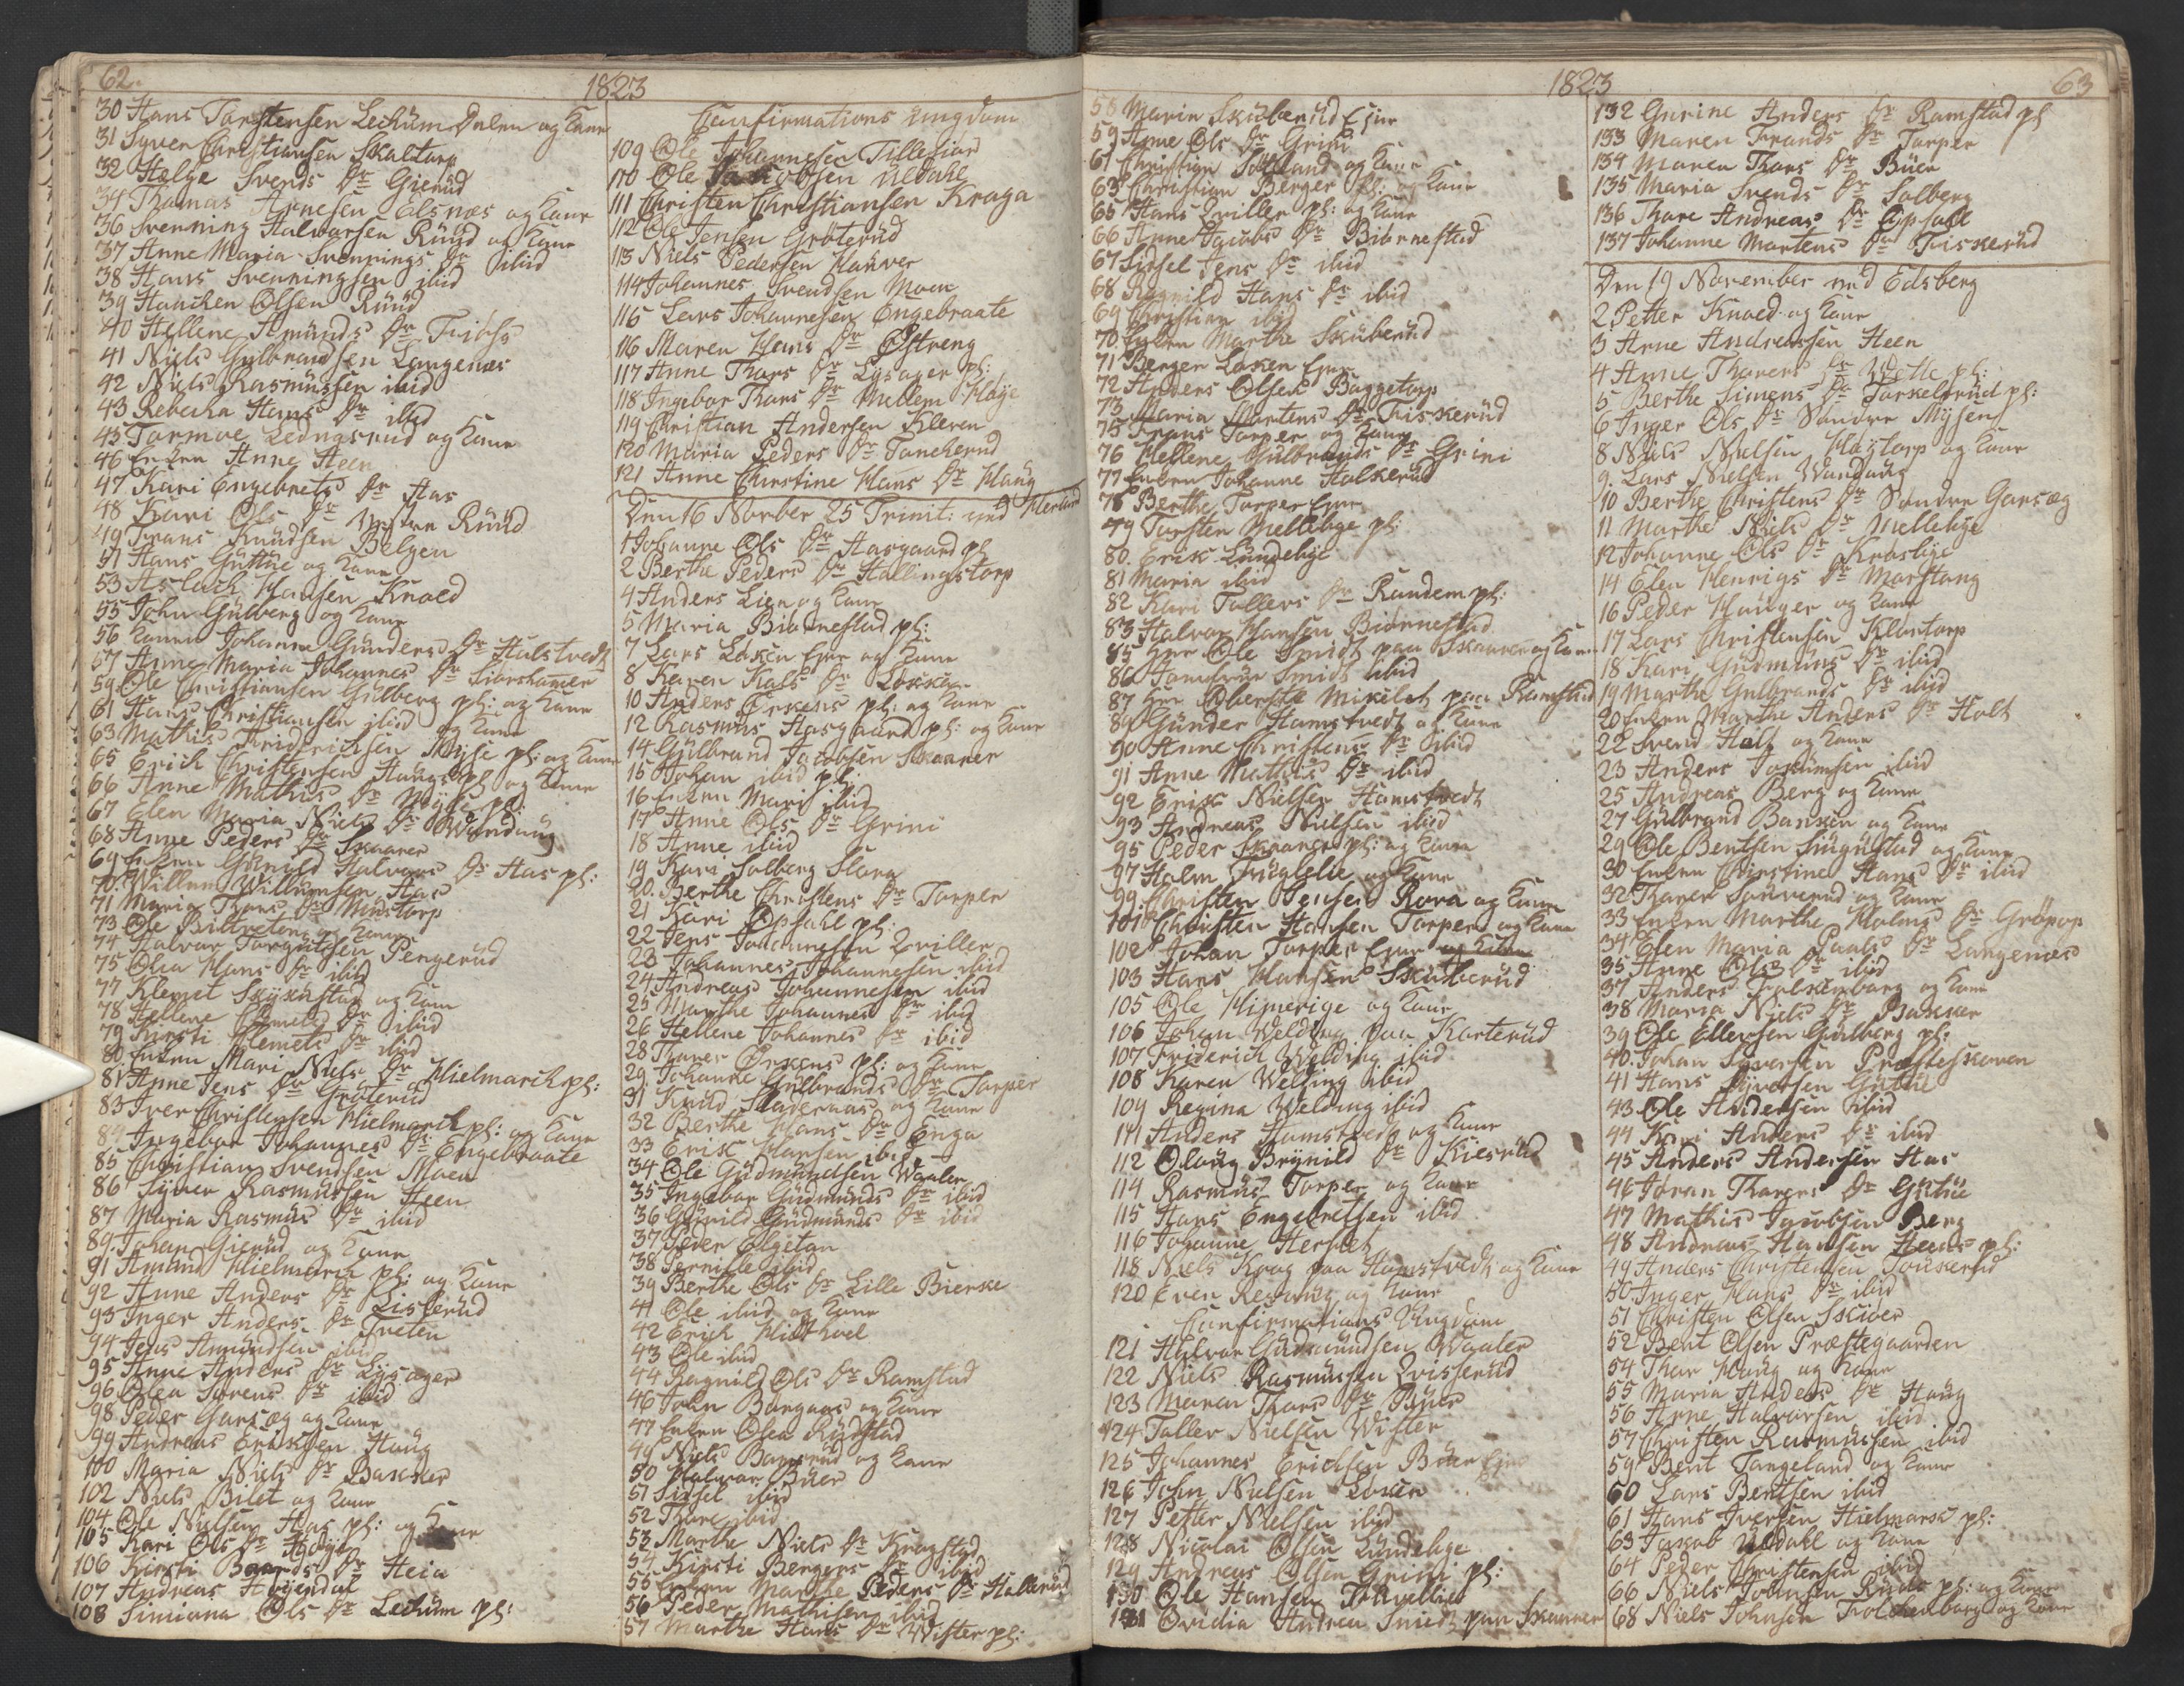 62.
1823
30 Hans Torstensen Lechum Dalen og Kone
31 Syver Christiansen Skaltorp
32 Helge Svends Dr Gierud
34 Thomas Arnesen Elsnæs og Kone
36 Svenning Halvorsen Ruud og Kone
37 Anne Maria Svennings Dr ibid
38 Hans Svenningsen ibid
39 Haachen Olsen Ruud
40 Hellene Amunds Dr
41 Niels Gulbrandsen Langenæs
42 Niels Rasmussen ibid
43 Rebecka Hans Dr ibid
45 Tormoe Lednasrud og Kone
46 Enken Anne Heen
47 Kari Engebrets Dr Aas
48 Kari Ols Dr Vestre Ruud
49 Frans Knudsen Belgen
51 Hans Guttue og Kone
53 Aslach Hansen Knoed
55 John Gulberg og Kone
56 Konen Johanne Gunders Dr Hulstvedt
57 Anne Maria Johannes Dr
59 Ole Christiansen Gulberg pl: og Kone
61 Hans Christiansen ibid og Kone
63 Mathis Friderichsen Myse pl: og Kone
65 Erich Christensen Haugs pl og Kone
66 Anne Mathis Dr Myse pl:
67 Elen Maria Niels Dr Wandaug
68 Anne Peders Dr Skaarer
69 Enken Gunild Halvors Dr Aas pl:
70. Willum Willumsen Aas
71 Maria Thors Dr Mustorp
73 Ole Billreten og Konen
74 Halvor Torgutsen Pengerud
75 Olea Hans Dr ibid
77 Klemet Skyxustad og Kone
78 Hellene Klemets Dr ibid
79 Kirsti Klemets Dr ibid
80 Enken Mari Niels Dr Hielmarck pl:
81 Anne Jens Dr Gröterud
83 Iver Christensen Hielmarck pl: og Kone
84 Ingebor Johannes Dr Engebraate
85 Christian Svendsen Moen
86 Syver Rasmussen Heen
87 Maria Rasmus Dr ibid
89. Johan Gierud og Kone
91 Amund Hielmarck pl: og Kone
92 Anne Anders Dr Listerud
93 Inger Anders Dr Tveten
94 Jens Amundsen ibid
95 Anne Anders Dr Lysager
96 Olea Sørens Dr ibid
98 Peder Garsæg og Kone
99 Andreas Erichsen Haug
100 Maria Niels Dr Baxker
102 Niels Bilet og Kone
104 Ole Nielsen Aas pl: og Kone
105 Kari Ols Dr Høye
106 Kirsti Baards Dr Heia
107 Andreas Høyendal
108 Simiana Ols Dr Lechum pl:
Confirmations ungdom
109 Ole Johannesen Tillefiør
110 Ole Jacobsen Uldahl
111 Christen Christiansen Kraga
112 Ole Jensen Gröterud
113 Niels Pedersen Hauver
114 Johannes Svendsen Moen
115 Lars Johannesen Engebraate
116 Maren Hans Dr Østreng
117 Anne Thors Dr Lysager pl:
118 Ingebor Thors Dr Mellem Høye
119 Christian Andersen Kleven
120 Maria Peders Dr Fancherud
121 Anne Christine Hans Dr Haug
Den 16 Novber 25 Trinit: ved Herland
1 Johanne Ols Dr Aasgaard pl
2 Berthe Peders Dr Hallingstorp
4 Anders Lien og Kone
5 Maria Biørnestad pl:
7 Lars Løken Ejer og Kone
8 Karen Kals Dr Løkken
10 Anders Ørkens pl: og Kone
12 Rasmus Aasgaard pl: og Kone
14 Gulbrand Jacobsen Skaarer
15 Johan ibid pl:
16 Enken Mari ibid
17 Anne Ols Dr Grini
18 Anne ibid
19 Kari Solberg Slora
20. Berthe Christens Dr Torper
21 Kari Opsahl pl:
22 Jens Johannesen Qviller
23 Johannes Johannesen ibid
24 Andreas Johannesen ibid
25 Marthe Johannes Dr ibid
26 Hellene Johannes Dr ibid
28 Thorer Ørkens pl: og Kone
29. Johanne Gulbrands Dr Torper
31 Knud Staderaas og Kone
32 Berthe Hans Dr Enga
33 Erik Hansen ibid
34 Ole Gudmundsen Waaler
35 Ingebor Gudmunds Dr ibid
36 Gunild Gudmunds Dr ibid
37 Peder Elgetan
38 Pernille ibid
39 Berthe Ols Dr Lille Bierke
41 Ole ibid og Kone
42 Erich Midthoel
43 Ole ibid
44 Ragnild Ols Dr Ramstad
46 John Bangaas og Kone
47 Enken Olea Rudstad
49 Niels Bamrud og Kone
50 Halvor Buer
51 Sidsel ibid
52 Thore ibid
53 Marthe Niels Dr Kragstad
54 Kirsti Bergers Dr ibid
55 Enken Marthe Peders Dr Hallerud
56 Peder Mathisen ibid
57 Marthe Hans Dr Wister pl:
1823
63
58 Marin Skuberud Ejer
59 Anne Ols Dr Grini
61 Christian Sottland og Kone
63 Christian Berger pl: og Kone
65 Hans Qviller pl: og Kone
66 Anne Jacobs Dr Biørnestad
67 Sidsel Jens Dr ibid
68 Ragnild Hans Dr ibid
69 Christian ibid
70. Enken Marthe Skuberud
71 Berger Løken Ejer
72 Anders Olsen Baggetorp
73 Maria Mortens Dr Fiskerud
75 Frans Torper og Kone
76 Hellene Gulbrands Dr Grini
77 Enken Johanne Halkerud
78 Berthe Torper Ejer
79 Torsten Mellebye pl:
80. Erik Lundebye
81 Maria ibid
82 Kari Tollers Dr Rundem pl:
83 Halvor Hansen Biørnestad
85 Hrr Ole Smidt paa Skaarer og Kone
86 Jomfrue Smidt ibid
87 Hrr Oberste Mikelet paa Ramstad
89 Gunder Hamstvedt og Kone
90 Anne Christens Dr ibid
91 Anne Mathis Dr ibid
92 Erik Nielsen Hamstvedt
93 Andreas Nielsen ibid
95 Peder Skaarer pl: og Kone
97 Holm Fuglelie og Kone
99. Christen Jensen Rova og Kone
101 Christen Hansen Torper og Kone
102 Johan Torper Ejer og Kone
103 Hans Hansen Skuberud
105 Ole Himerige og Kone
106 Johan Welding paa Korterud
107 Friderich Welding ibid
108 Karen Welding ibid
109 Regina Welding ibid
111 Anders Hamstvedt og Kone
112 Olaug Brynild Dr Kiesrud
114 Rasmus Torper og Kone
115 Hans Engebretsen ibid
116 Johanne Herslet
118 Niels Krog paa Hamstvedt og Kone
120 Even Resming og Kone
Confirmations Ungdom
121 Halvor Gudmundsen Waaler
122 Niels Rasmussen Qvisserud
123 Maren Thors Dr Buer
124 Toller Nielsen Wister
125 Johannes Erichsen Buer Ejer
126 John Nielsen Løken
127 Petter Nielsen ibid
128 Nicolai Olsen Lundebye
129 Andreas Olsen Grini pl:
130 Ole Hansen
131 Ovidia Andrea Smidt paa Skaarer
132 Gurine Anders Dr Ramstad pl
133 Maren Frands Dr Torper
134 Maren Thors Dr Buer
135 Maria Svends Dr Solberg
136 Thore Andreas Dr Opsahl
137 Johanne Martens Dr Fuskerud
Den 19 November ved Edsberg
2 Petter Knoed og Kone
3 Arne Andreassen Heen
4 Anne Thorers Dr Wette pl:
5 Berthe Simens Dr Torkelsrud pl:
6 Inger Ols Dr Søndre Mysen
8 Niels Nielsen Høytorp og Kone
9. Lars Nielsen Wandaug
10 Berthe Christens Dr Søndre Garsæg
11 Marthe Niels Dr Mellebye
12 Johanne Ols Dr Krosbye
14 Elen Henrigs Dr Morstang
16 Peder Hauger og Kone
17 Lars Christensen Klontorp
18 Kari Gudmuns Dr ibid
19 Marthe Gulbrands Dr ibid
20 Enken Marthe Anders Dr Holt
22 Svend Holt og Kone
23 Anders Joxumsen ibid
25 Andreas Berg og Kone
27 Gulbrand Banken og Kone
29 Ole Bentsen Singustad og Kone
30 Enken Christine Hans Dr ibid
32 Thorer Sauverud og Kone
33 Enken Marthe Holms Dr Gröpop
34 Elen Maria Pauls Dr Langenæs
35 Anne Ols Dr ibid
37 Anders Falkenborg og Kone
38 Maria Niels Dr Baxker
39 Ole Ellevsen Gulberg pl:
40. Johan Syversen Præsteskoven
41 Hans Syversen Guttue
43 Ole Andersen ibid
44 Kari Anders Dr ibid
45 Anders Andersen Aas
46 Joran Thorers Dr Guttue
47 Mathis Jacobsen Berg
48 Andreas Hansen Heens pl:
49 Anders Christensen Touserud
50 Inger Hans Dr ibid
51 Christen Olsen Skiver
52 Bent Olsen Præstegaarden
54 Thor Haug og Kone
55 Maria Anders Dr Haug
56 Arne Halvorsen ibid
57 Christen Rasmussen ibid
59 Bent Tangeland og Kone
60 Lars Bentsen ibid
61 Hans Iversen Hielmark pl:
63 Jakob Uldahl og Kone
64 Peder Christensen ibid
66 Niels Johnsen Ruds pl: og Kone
68 Niels Johnsen Folckenborg og Kone